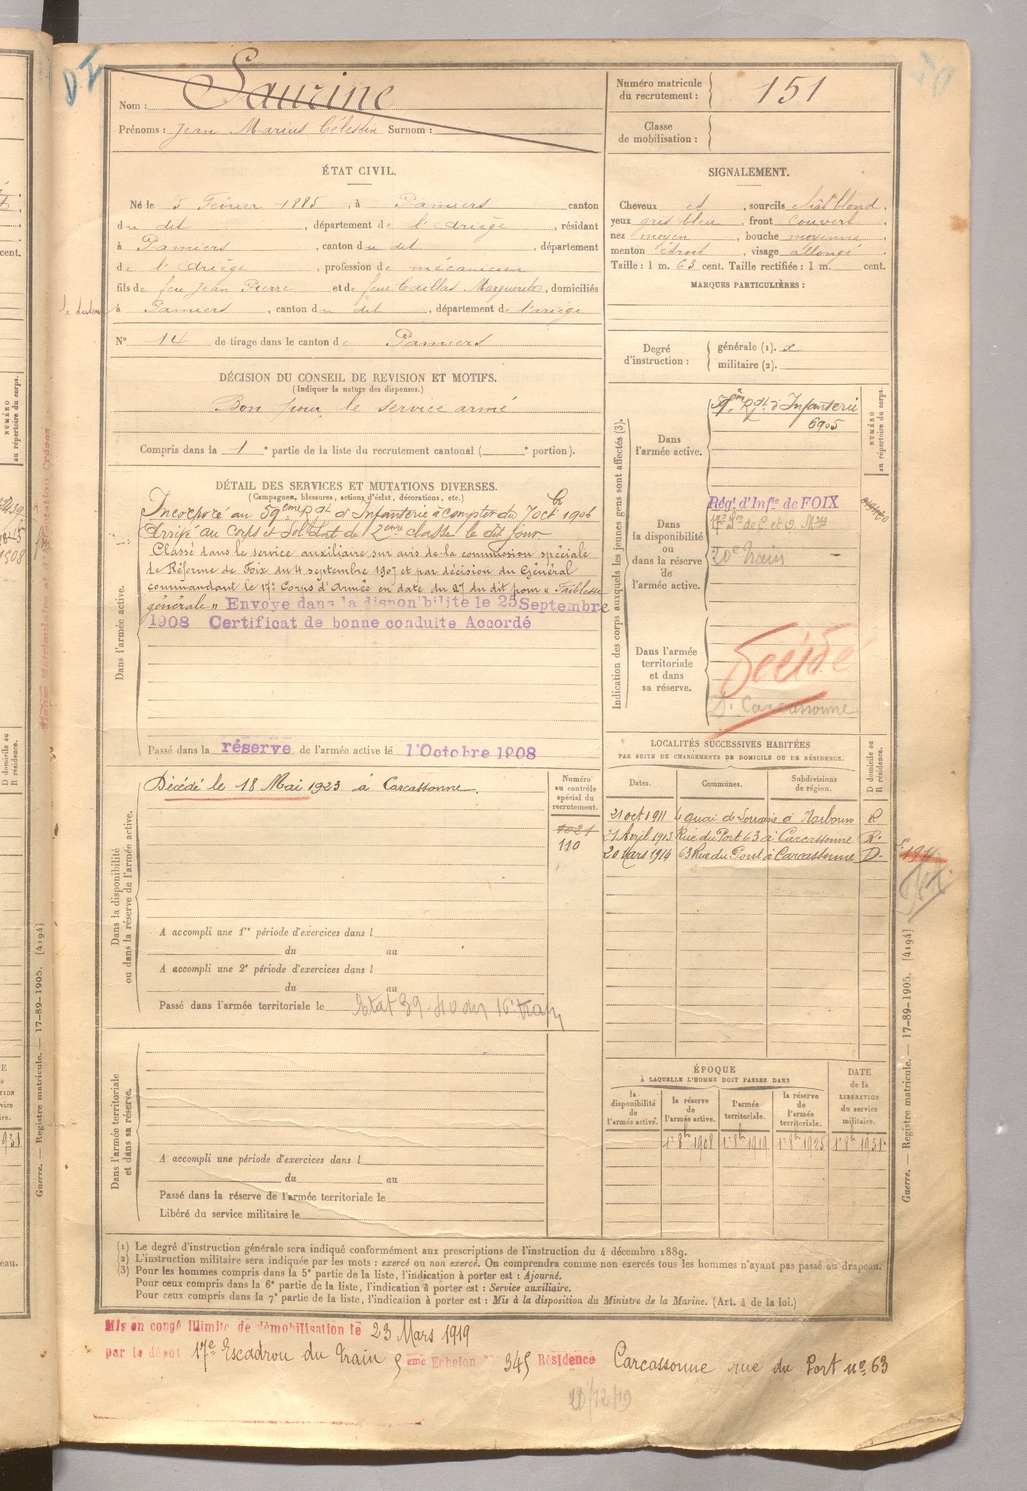 D I
Nom : Saurine
Prénoms : Jean Marius Célestin Surnom :
Numéro matricule du recrutement : 151
Classe de mobilisation :
ÉTAT CIVIL.
Né le 5 Février 1885, à Pamiers canton
du dit, département de l'Ariège, résidant
à Pamiers, canton du dit, département
de l'Ariège, profession de mécanicien
fils de feu Jean Pierre et de feue Caillas Marguerite, domiciliés
à Pamiers, canton du dit, département de l'Ariège
N° 14 de tirage dans le canton de Pamiers
SIGNALEMENT.
Cheveux et, sourcils chât blond
yeux gris bleu, front couvert
nez moyen, bouche moyenne
menton étroit, visage allongé
Taille : 1 m. 63 cent. Taille rectifiée : 1 m. cent.
MARQUES PARTICULIÈRES :
Degré d'instruction : générale (1). 2
militaire (2).
DÉCISION DU CONSEIL DE REVISION ET MOTIFS.
(Indiquer la nature des dispenses.)
Bon pour le service armé
Compris dans la 1e partie de la liste du recrutement cantonal ( e portion).
DÉTAIL DES SERVICES ET MUTATIONS DIVERSES.
(Campagnes, blessures, actions d'éclat, décorations, etc.)
Dans l'armée active.
Incorporé au 59eme Rgt d'Infanterie à compter du 7 oct 1906
Arrivé au Corps et soldat de 2eme classe le dit jour
Classé dans le service auxiliaire sur avis de la commission spéciale
de Réforme de Foix du 4 septembre 1907 et par décision du Général
commandant le 17e Corps d'Armée en date du 27 du dit pour « Faiblesse
générale » Envoyé dans la disponibilité le 25 Septembre
1908 Certificat de bonne conduite Accordé
Passé dans la réserve de l'armée active le 1 Octobre 1908
Indication des corps auxquels les jeunes gens sont affectés (3).
NUMÉRO au répertoire du corps.
Dans l'armée active.
59eme Rgt d'Infanterie
6905
Dans la disponibilité ou dans la réserve de l'armée active.
Rég. d'Infie de FOIX
20e Train
Dans l'armée territoriale et dans sa réserve.
Décédé
D. Carcassonne
Dans la disponibilité ou dans la réserve de l'armée active.
Décédé le 18 Mai 1923 à Carcassonne.
Numéro au contrôle spécial du recrutement.
1021
110
A accompli une 1re période d'exercices dans l
du au
A accompli une 2e période d'exercices dans l
du au
Passé dans l'armée territoriale le
LOCALITÉS SUCCESSIVES HABITÉES
PAR SUITE DE CHANGEMENTS DE DOMICILE OU DE RÉSIDENCE.
D domicile ou R résidence.
Dates. Communes. Subdivisions de région.
21 oct 1911 4 quai de Lorraine à Narbonne R
21 Avril 1913 Rue du Port 63 à Carcassonne R.
20 Mars 1914 63 Rue du Pont à Carcassonne D.
Dans l'armée territoriale et dans sa réserve.
A accompli une période d'exercices dans l
du au
Passé dans la réserve de l'armée territoriale le
Libéré du service militaire le
ÉPOQUE
À LAQUELLE L'HOMME DOIT PASSER DANS
la disponibilité de l'armée active.
la réserve de l'armée active.
l'armée territoriale.
la réserve de l'armée territoriale.
DATE de la LIBÉRATION du service militaire.
1er 8bre 1908 1er 8bre 1919 1er 8bre 1925 1er 8bre 1931
(1) Le degré d'instruction générale sera indiqué conformément aux prescriptions de l'instruction du 4 décembre 1889.
(2) L'instruction militaire sera indiquée par les mots : exercé ou non exercé. On comprendra comme non exercés tous les hommes n'ayant pas passé au drapeau.
(3) Pour les hommes compris dans la 5e partie de la liste, l'indication à porter est : Ajourné.
Pour ceux compris dans la 6e partie de la liste, l'indication à porter est : Service auxiliaire.
Pour ceux compris dans la 7e partie de la liste, l'indication à porter est : Mis à la disposition du Ministre de la Marine. (Art. 4 de la loi.)
Guerre. — Registre matricule. — 17-89-1905. [4194]
Guerre. — Registre matricule. — 17-89-1905. [4194]
Mis en congé illimité de démobilisation le 23 Mars 1919
par le dépôt 17e Escadron du Train 5eme Echelon N° 345 Résidence Carcassonne rue du Port n° 63